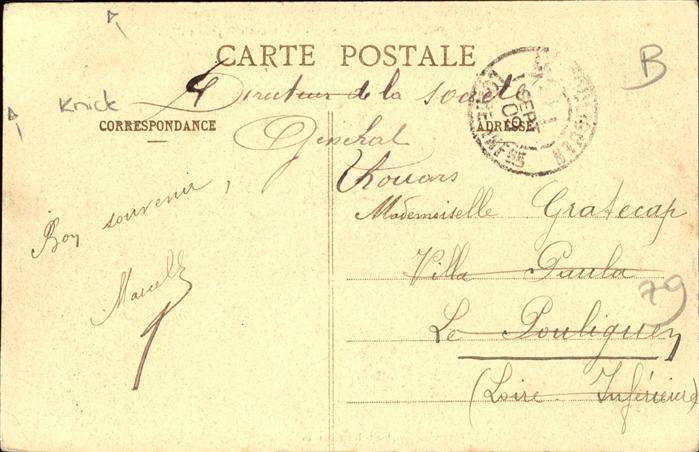 CARTE POSTALE
B
Knick
Directeur de la société
CORRESPONDANCE
ADRESSE
Général
Thouars
Bon souvenir,
Marcelle
Mademoiselle Gratecap
Villa Paula
79
Le Pouliguen
(Loire Inférieure)
SEPT
09